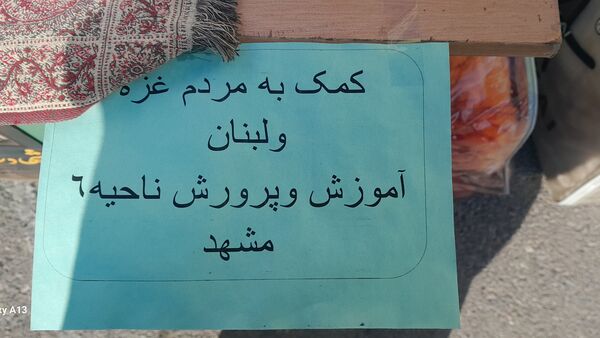 کمک به مردم غزه
ولبنان
آموزش وپرورش ناحیه٦
مشهد
xy A13